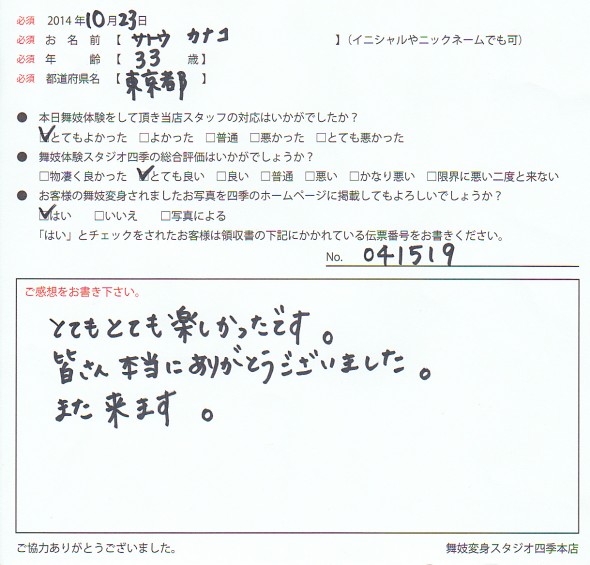 必須 2014年10月23日
必須 お名前【 サトウ カナコ 】(イニシャルやニックネームでも可)
必須 年齢【 33 歳】
必須 都道府県名【 東京都 】
● 本日舞妓体験をして頂き当店スタッフの対応はいかがでしたか？
☑とてもよかった □よかった □普通 □悪かった □とても悪かった
● 舞妓体験スタジオ四季の総合評価はいかがでしょうか？
□物凄く良かった ☑とても良い □良い □普通 □悪い □かなり悪い □限界に悪い二度と来ない
● お客様の舞妓変身されましたお写真を四季のホームページに掲載してもよろしいでしょうか？
☑はい □いいえ □写真による
「はい」とチェックをされたお客様は領収書の下記にかかれている伝票番号をお書きください。
No. 041519
ご感想をお書き下さい。
とてもとても楽しかったです。
皆さん本当にありがとうございました。
また来ます。
ご協力ありがとうございました。 舞妓変身スタジオ四季本店